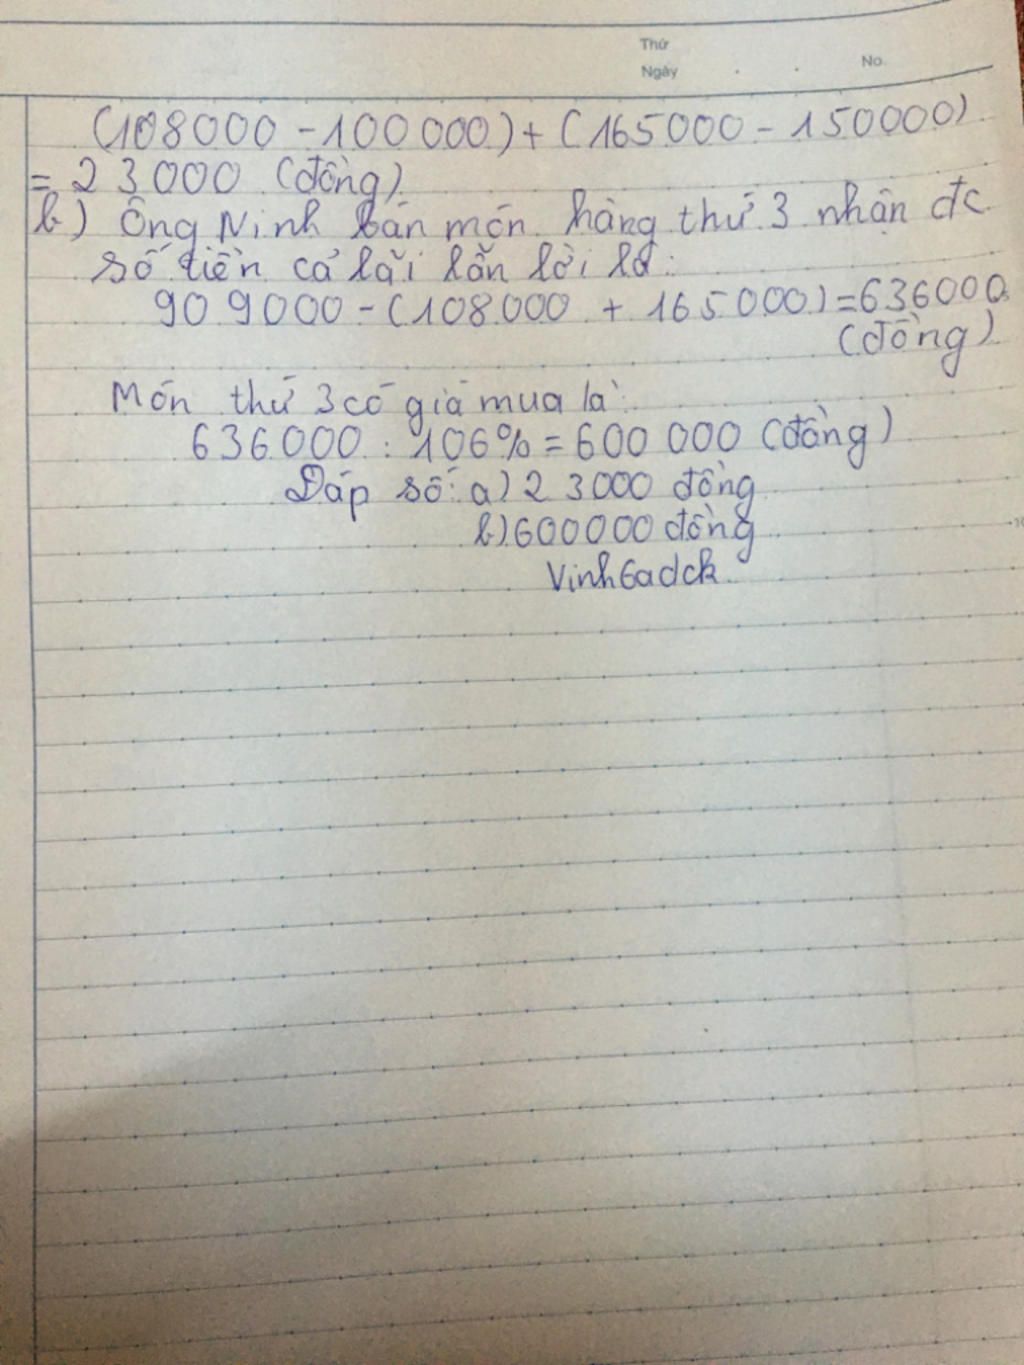 Thứ
Ngày
No
(108000 - 100 000) + (165000 - 150000)
= 23000 (đồng)
b) Ông Ninh bán món hàng thứ 3 nhận đc
số tiền cả lãi lẫn lời là:
909000 - (108000 + 165000) = 636000
(đồng)
Món thứ 3 có giá mua là:
636000 : 106% = 600 000 (đồng)
Đáp số: a) 23000 đồng
b) 600000 đồng
Vinh6adck